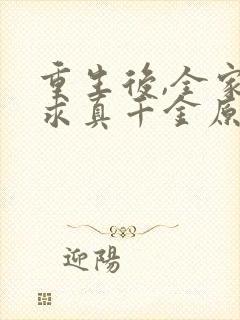 重生後,全家
求真千金原
迎陽